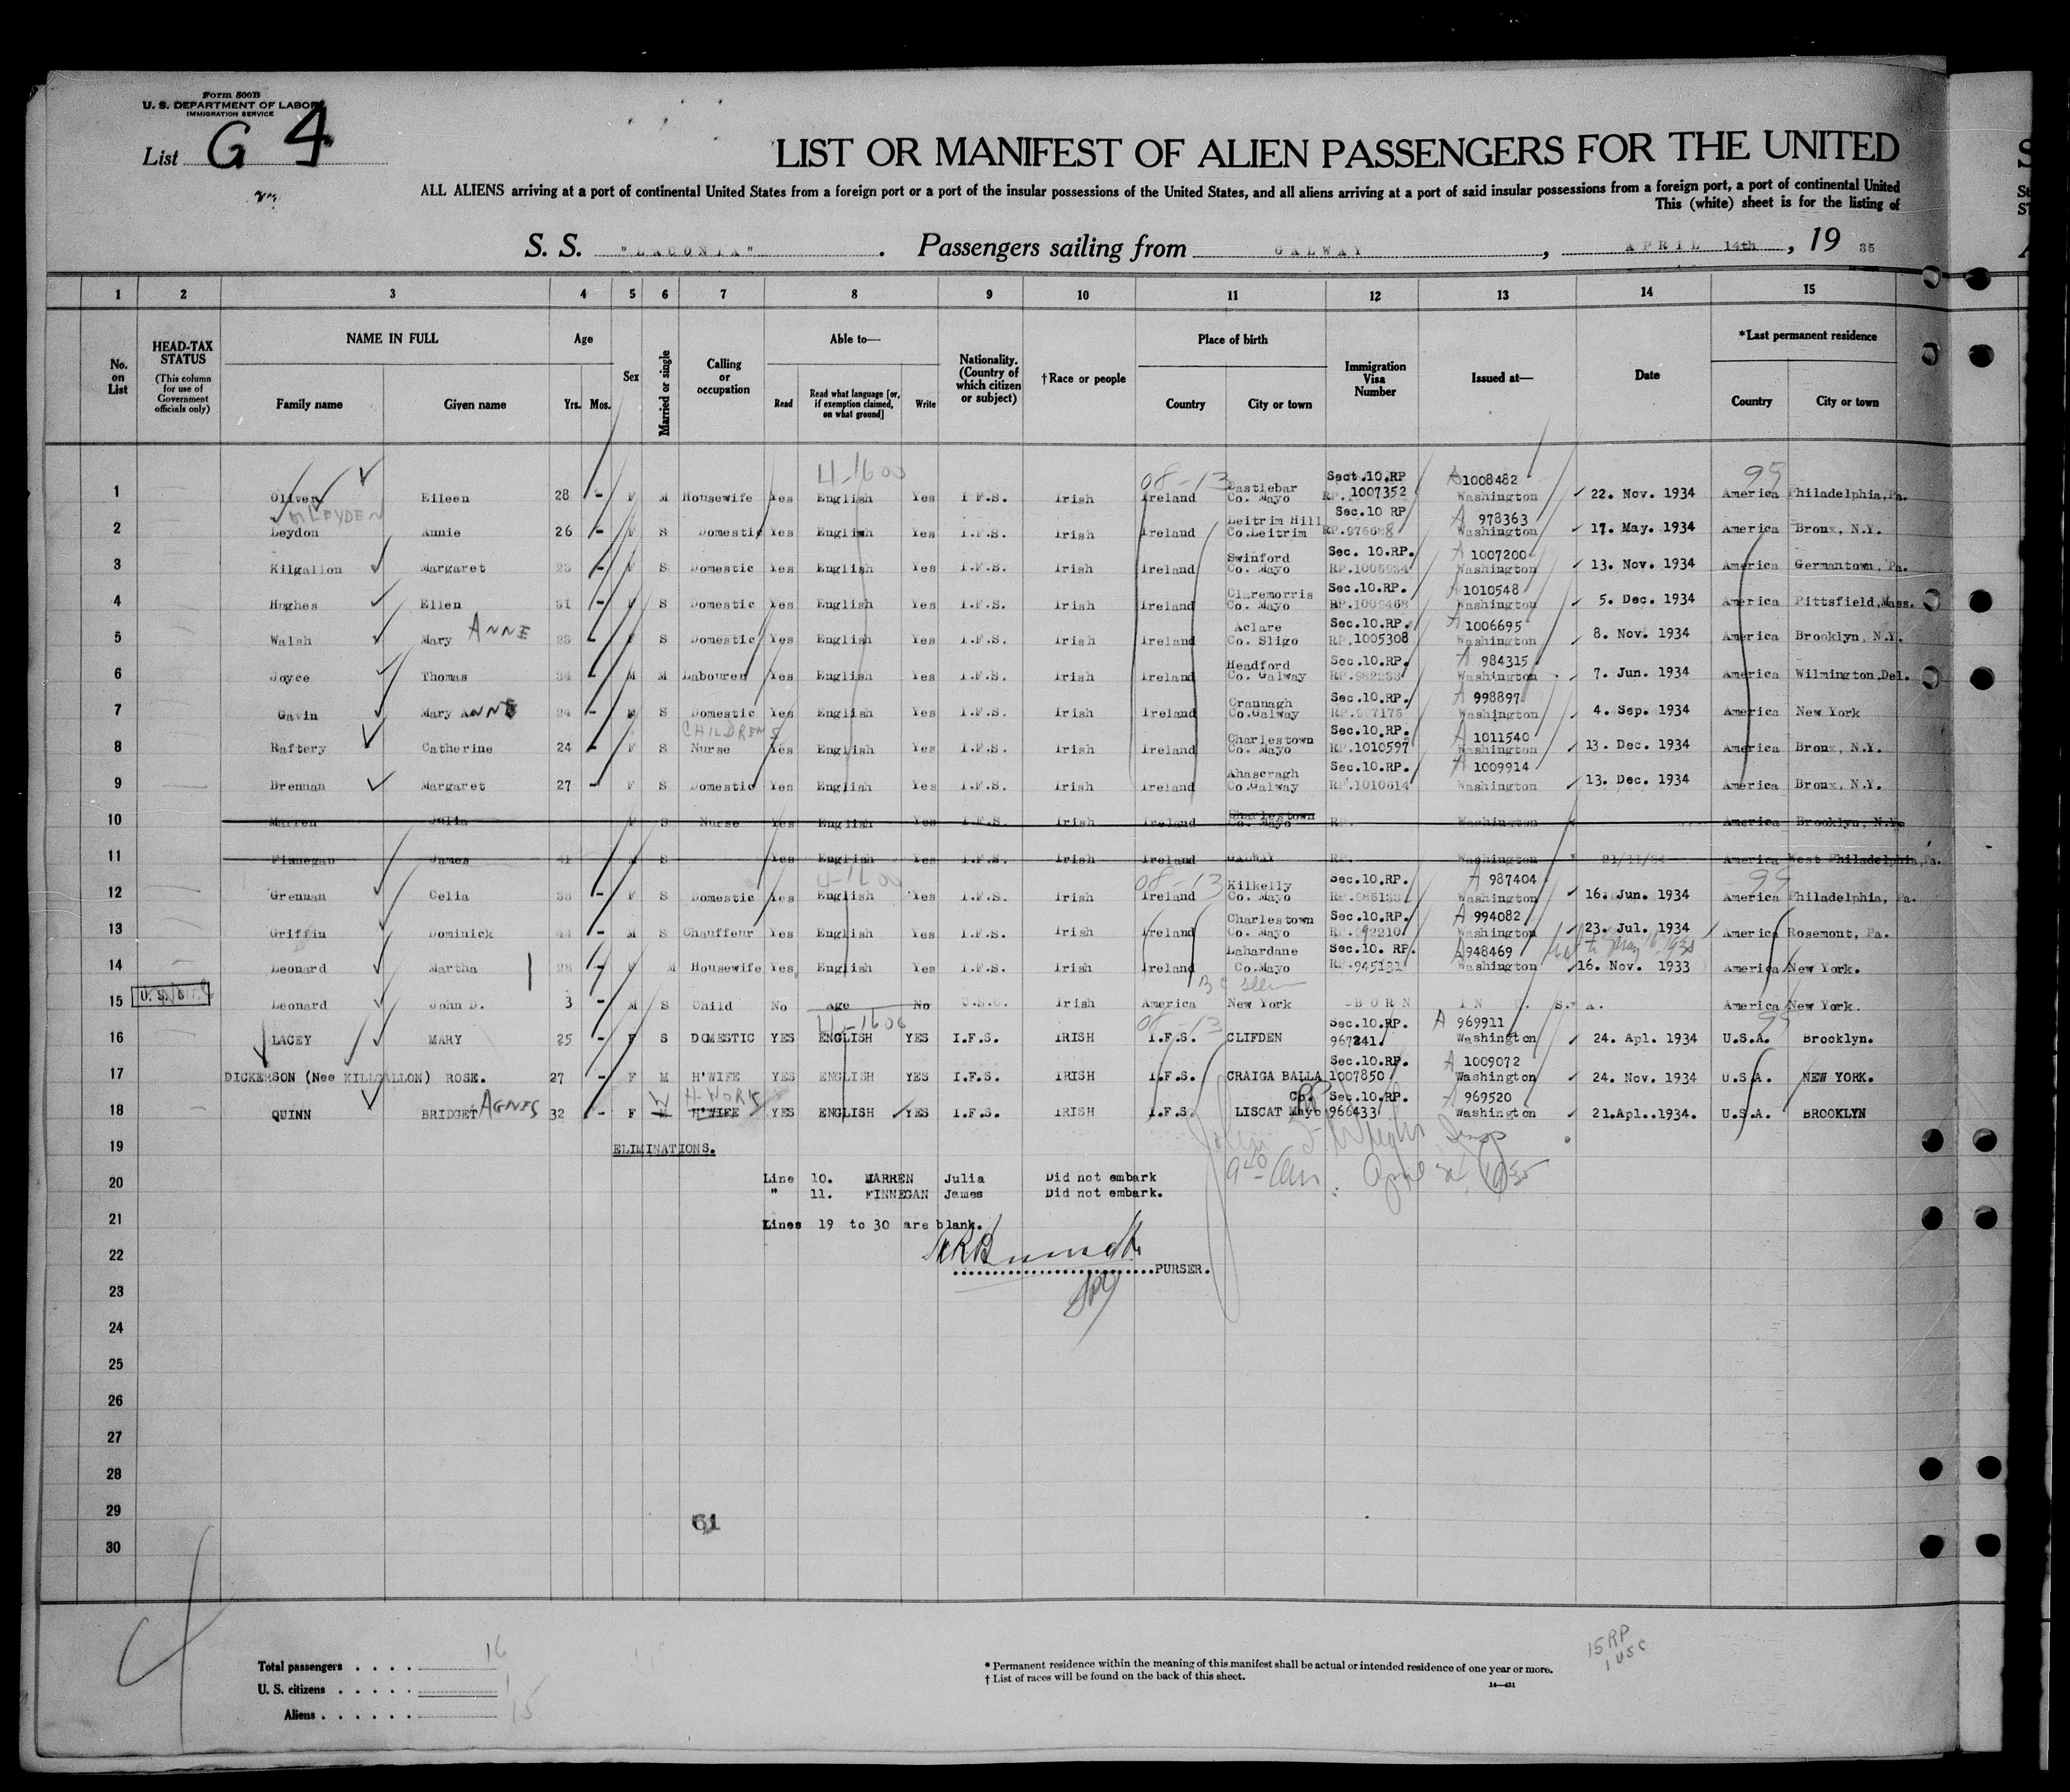 Form 500B
U. S. DEPARTMENT OF LABOR
IMMIGRATION SERVICE
List G 4
LIST OR MANIFEST OF ALIEN PASSENGERS FOR THE UNITED
ALL ALIENS arriving at a port of continental United States from a foreign port or a port of the insular possessions of the United States, and all aliens arriving at a port of said insular possessions from a foreign port, a port of continental United
This (white) sheet is for the listing of
S. S. "LACONIA" . Passengers sailing from GALWAY , APRIL 14th , 19 35
1 2 3 4 5 6 7 8 9 10 11 12 13 14 15
No. on List
HEAD-TAX STATUS (This column for use of Government officials only)
NAME IN FULL Family name Given name
Age Yrs. Mos.
Sex
Married or single
Calling or occupation
Able to— Read Read what language [or, if exemption claimed, on what ground] Write
Nationality. (Country of which citizen or subject)
†Race or people
Place of birth Country City or town
Immigration Visa Number
Issued at—
Date
*Last permanent residence Country City or town
4-1600 08-13 99
1 Oliver Eileen 28 - F M Housewife Yes English Yes I.F.S. Irish Ireland Castlebar Co. Mayo Sect.10.RP RP.1007352 A 1008482 Washington 22. Nov. 1934 America Philadelphia,Pa.
McLEYDEN
2 Leydon Annie 26 - F S Domestic Yes English Yes I.F.S. Irish Ireland Leitrim Hill Co.Leitrim Sec.10 RP A 978363 Washington 17. May. 1934 America Bronx, N.Y.
3 Kilgallon Margaret - F S Domestic Yes English Yes I.F.S. Irish Ireland Swinford Co. Mayo Sec. 10.RP. A 1007200 Washington 13. Nov. 1934 America Germantown, Pa.
4 Hughes Ellen 31 - F S Domestic Yes English Yes I.F.S. Irish Ireland Claremorris Co. Mayo Sec.10.RP. A 1010548 Washington 5. Dec. 1934 America Pittsfield,Mass.
5 Walsh Mary ANNE 23 - F S Domestic Yes English Yes I.F.S. Irish Ireland Aclare Co. Sligo Sec.10.RP. RP.1005308 A 1006695 Washington 8. Nov. 1934 America Brooklyn, N.Y.
6 Joyce Thomas 34 - M M Labourer Yes English Yes I.F.S. Irish Ireland Headford Co. Galway Sec.10.RP. A 984315 Washington 7. Jun. 1934 America Wilmington,Del.
7 Gavin Mary ANNE 24 - F S Domestic Yes English Yes I.F.S. Irish Ireland Crannagh Co.Galway Sec.10.RP. A 998897 Washington 4. Sep. 1934 America New York
CHILDRENS
8 Raftery Catherine 24 - F S Nurse Yes English Yes I.F.S. Irish Ireland Charlestown Co. Mayo Sec.10.RP. RP.1010597 A 1011540 Washington 13. Dec. 1934 America Bronx, N.Y.
9 Brennan Margaret 27 - F S Domestic Yes English Yes I.F.S. Irish Ireland Ahascragh Co.Galway Sec.10.RP. RP.1010614 A 1009914 Washington 13. Dec. 1934 America Bronx, N.Y.
10 Marren Julia F S Nurse Yes English Yes I.F.S. Irish Ireland Charlestown Co. Mayo RP. Washington America Brooklyn, N.Y.
11 Finnegan James 41 M S Yes English Yes I.F.S. Irish Ireland GALWAY RP. Washington America West Philadelphia,Pa.
4-1600 08-13 99
12 Grennan Celia 38 - F S Domestic Yes English Yes I.F.S. Irish Ireland Kilkelly Co. Mayo Sec.10.RP. A 987404 Washington 16. Jun. 1934 America Philadelphia, Pa.
13 Griffin Dominick 44 - M S Chauffeur Yes English Yes I.F.S. Irish Ireland Charlestown Co. Mayo Sec.10.RP. A 994082 Washington 23. Jul. 1934 America Rosemont, Pa.
14 Leonard Martha 28 - F M Housewife Yes English Yes I.F.S. Irish Ireland Lahardane Co.Mayo Sec.10. RP. RP.945131 A 948469 Washington 16. Nov. 1933 America New York.
15 Leonard John D. 3 - M S Child No Age No U.S.C. Irish America New York -BORN IN U. S. A. America New York.
4-1600 08-13 99
16 LACEY MARY 25 - F S DOMESTIC YES ENGLISH YES I.F.S. IRISH I.F.S. CLIFDEN Sec.10.RP. 967241. A 969911 Washington 24. Apl. 1934 U.S.A. Brooklyn.
17 DICKERSON (Nee KILLGALLON) ROSE. 27 - F M H'WIFE YES ENGLISH YES I.F.S. IRISH I.F.S. CRAIGA BALLA Sec.10.RP. 1007850 A 1009072 Washington 24. Nov. 1934 U.S.A. NEW YORK.
W H-WORK
18 QUINN BRIDGET AGNES 32 - F M H'WIFE YES ENGLISH YES I.F.S. IRISH I.F.S. LISCAT Co. Mayo Sec.10.RP. RP 966433 A 969520 Washington 21.Apl..1934. U.S.A. BROOKLYN
19 ELIMINATIONS.
20 Line 10. MARREN Julia Did not embark
" 11. FINNEGAN James Did not embark.
21 Lines 19 to 30 are blank.
22
PURSER.
23
24
25
26
27
28
29
61
30
Total passengers . . . . 16
U. S. citizens . . . . . 1
Aliens . . . . . . 15
* Permanent residence within the meaning of this manifest shall be actual or intended residence of one year or more.
† List of races will be found on the back of this sheet.
14—431
15 RP
1 USC